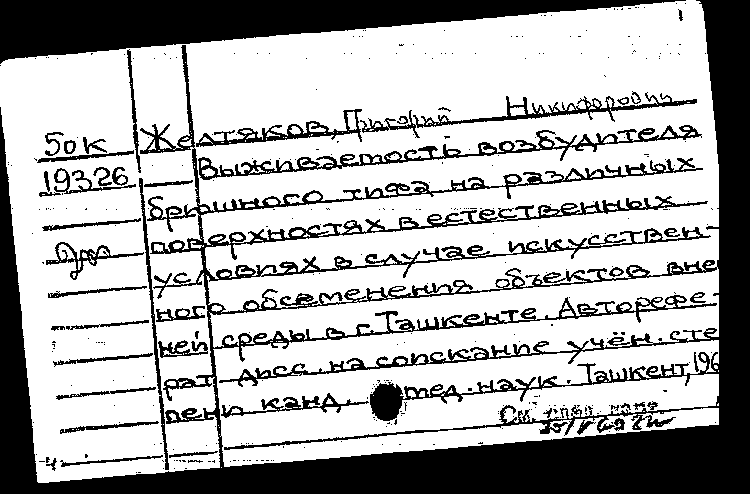 50к Желтяков, Григорий Никифорович
19326 Выживаемость возбудителя
брюшного тифа на различных
поверхностях в естественных
условиях в случае искусствен-
ного обсеменения объектов внеш-
ней среды в г. Ташкенте. Авторефе-
рат дисс. на соискание учён. сте-
пени канд. мед. наук. Ташкент, 196
См.